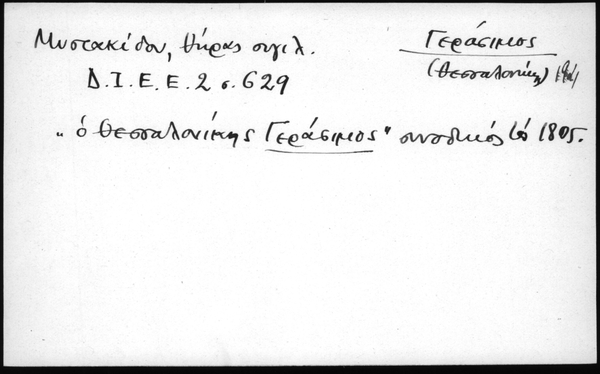 Μυστακίδου, Θήρας σιγιλ.
Δ.Ι.Ε.Ε. 2 σ. 629
Γεράσιμος
(Θεσσαλονίκης)
"ὁ Θεσσαλονίκης Γεράσιμος" συνοδικός 1805.